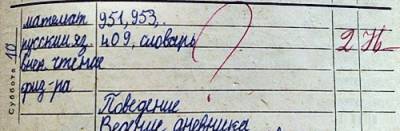 Суббота 10
математ 951, 953,.
русский яз. 409, словарь 2
внек. чтение
физ-ра
Поведение
Ведение дневника